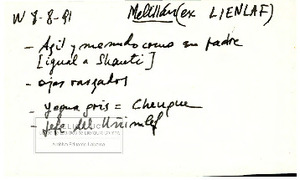 W 8-8-91 Melillán (ex LIENLAF)
- Agil y menudo como su padre
[igual a Shauti]
- ojos rasgados
- yegua gris = Cheuque
- Jefe del